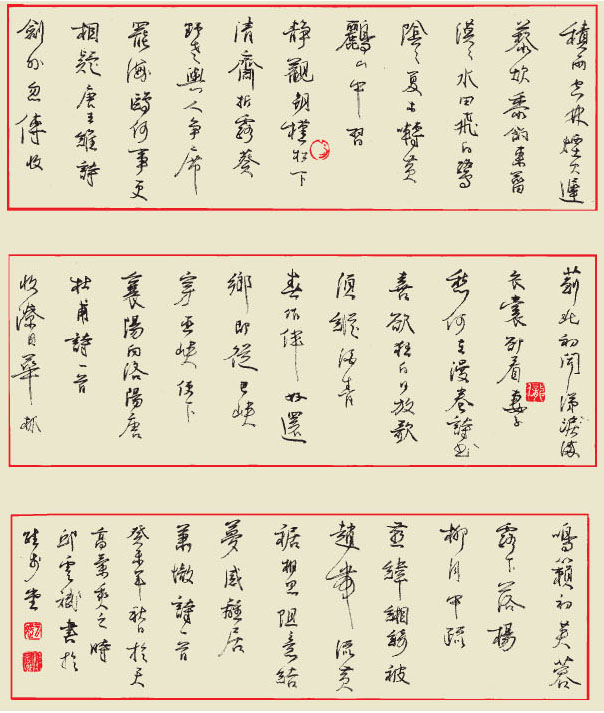 積雨空林煙火遲
炊黍餉東菑
漠々水田飛白鷺
陰々夏木囀黃
鸝山中習
静觀朝槿松下
清齋折露葵
野老與人争席
罷海鷗何事更
相疑唐王維詩
劍外忽傳收
薊北初聞涕淚滿
衣裳卻看妻子
愁何在漫卷詩書
喜欲狂白日放歌
須縱酒青
春作伴好還
鄉即從巴峽
穿巫峽便下
襄陽向洛陽唐
杜甫詩一首
收潦日華林
鳴籟初芙蓉
露下落楊
柳月中疏
燕幃緗綺被
趙帶流黃
裾相思阻音結
夢感離居
蕭慤詩一首
癸未年秋日於天
高氣爽之時
邱雲書於
堂